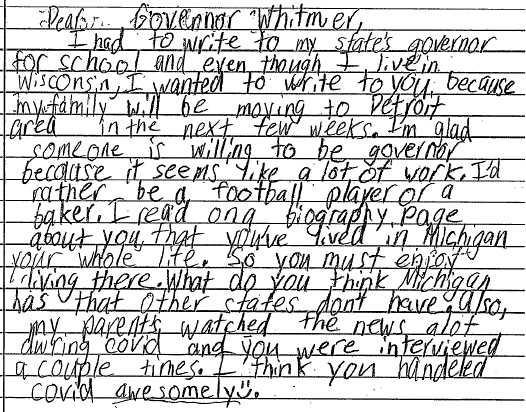 Dear Governor Whitmer,
I had to write to my state's governor
for school and even though I live in
Wisconsin, I wanted to write to you, because
my family will be moving to Detroit
area in the next few weeks. I'm glad
someone is willing to be governor
because it seems like a lot of work. I'd
rather be a football player or a
baker. I read on a biography page
about you, that you've lived in Michigan
your whole life. So you must enjoy
living there. What do you think Michigan
has that other states don't have. Also,
my parents watched the news alot
during covid and you were interviewed
a couple times. I think you handeled
covid awesomely☺.